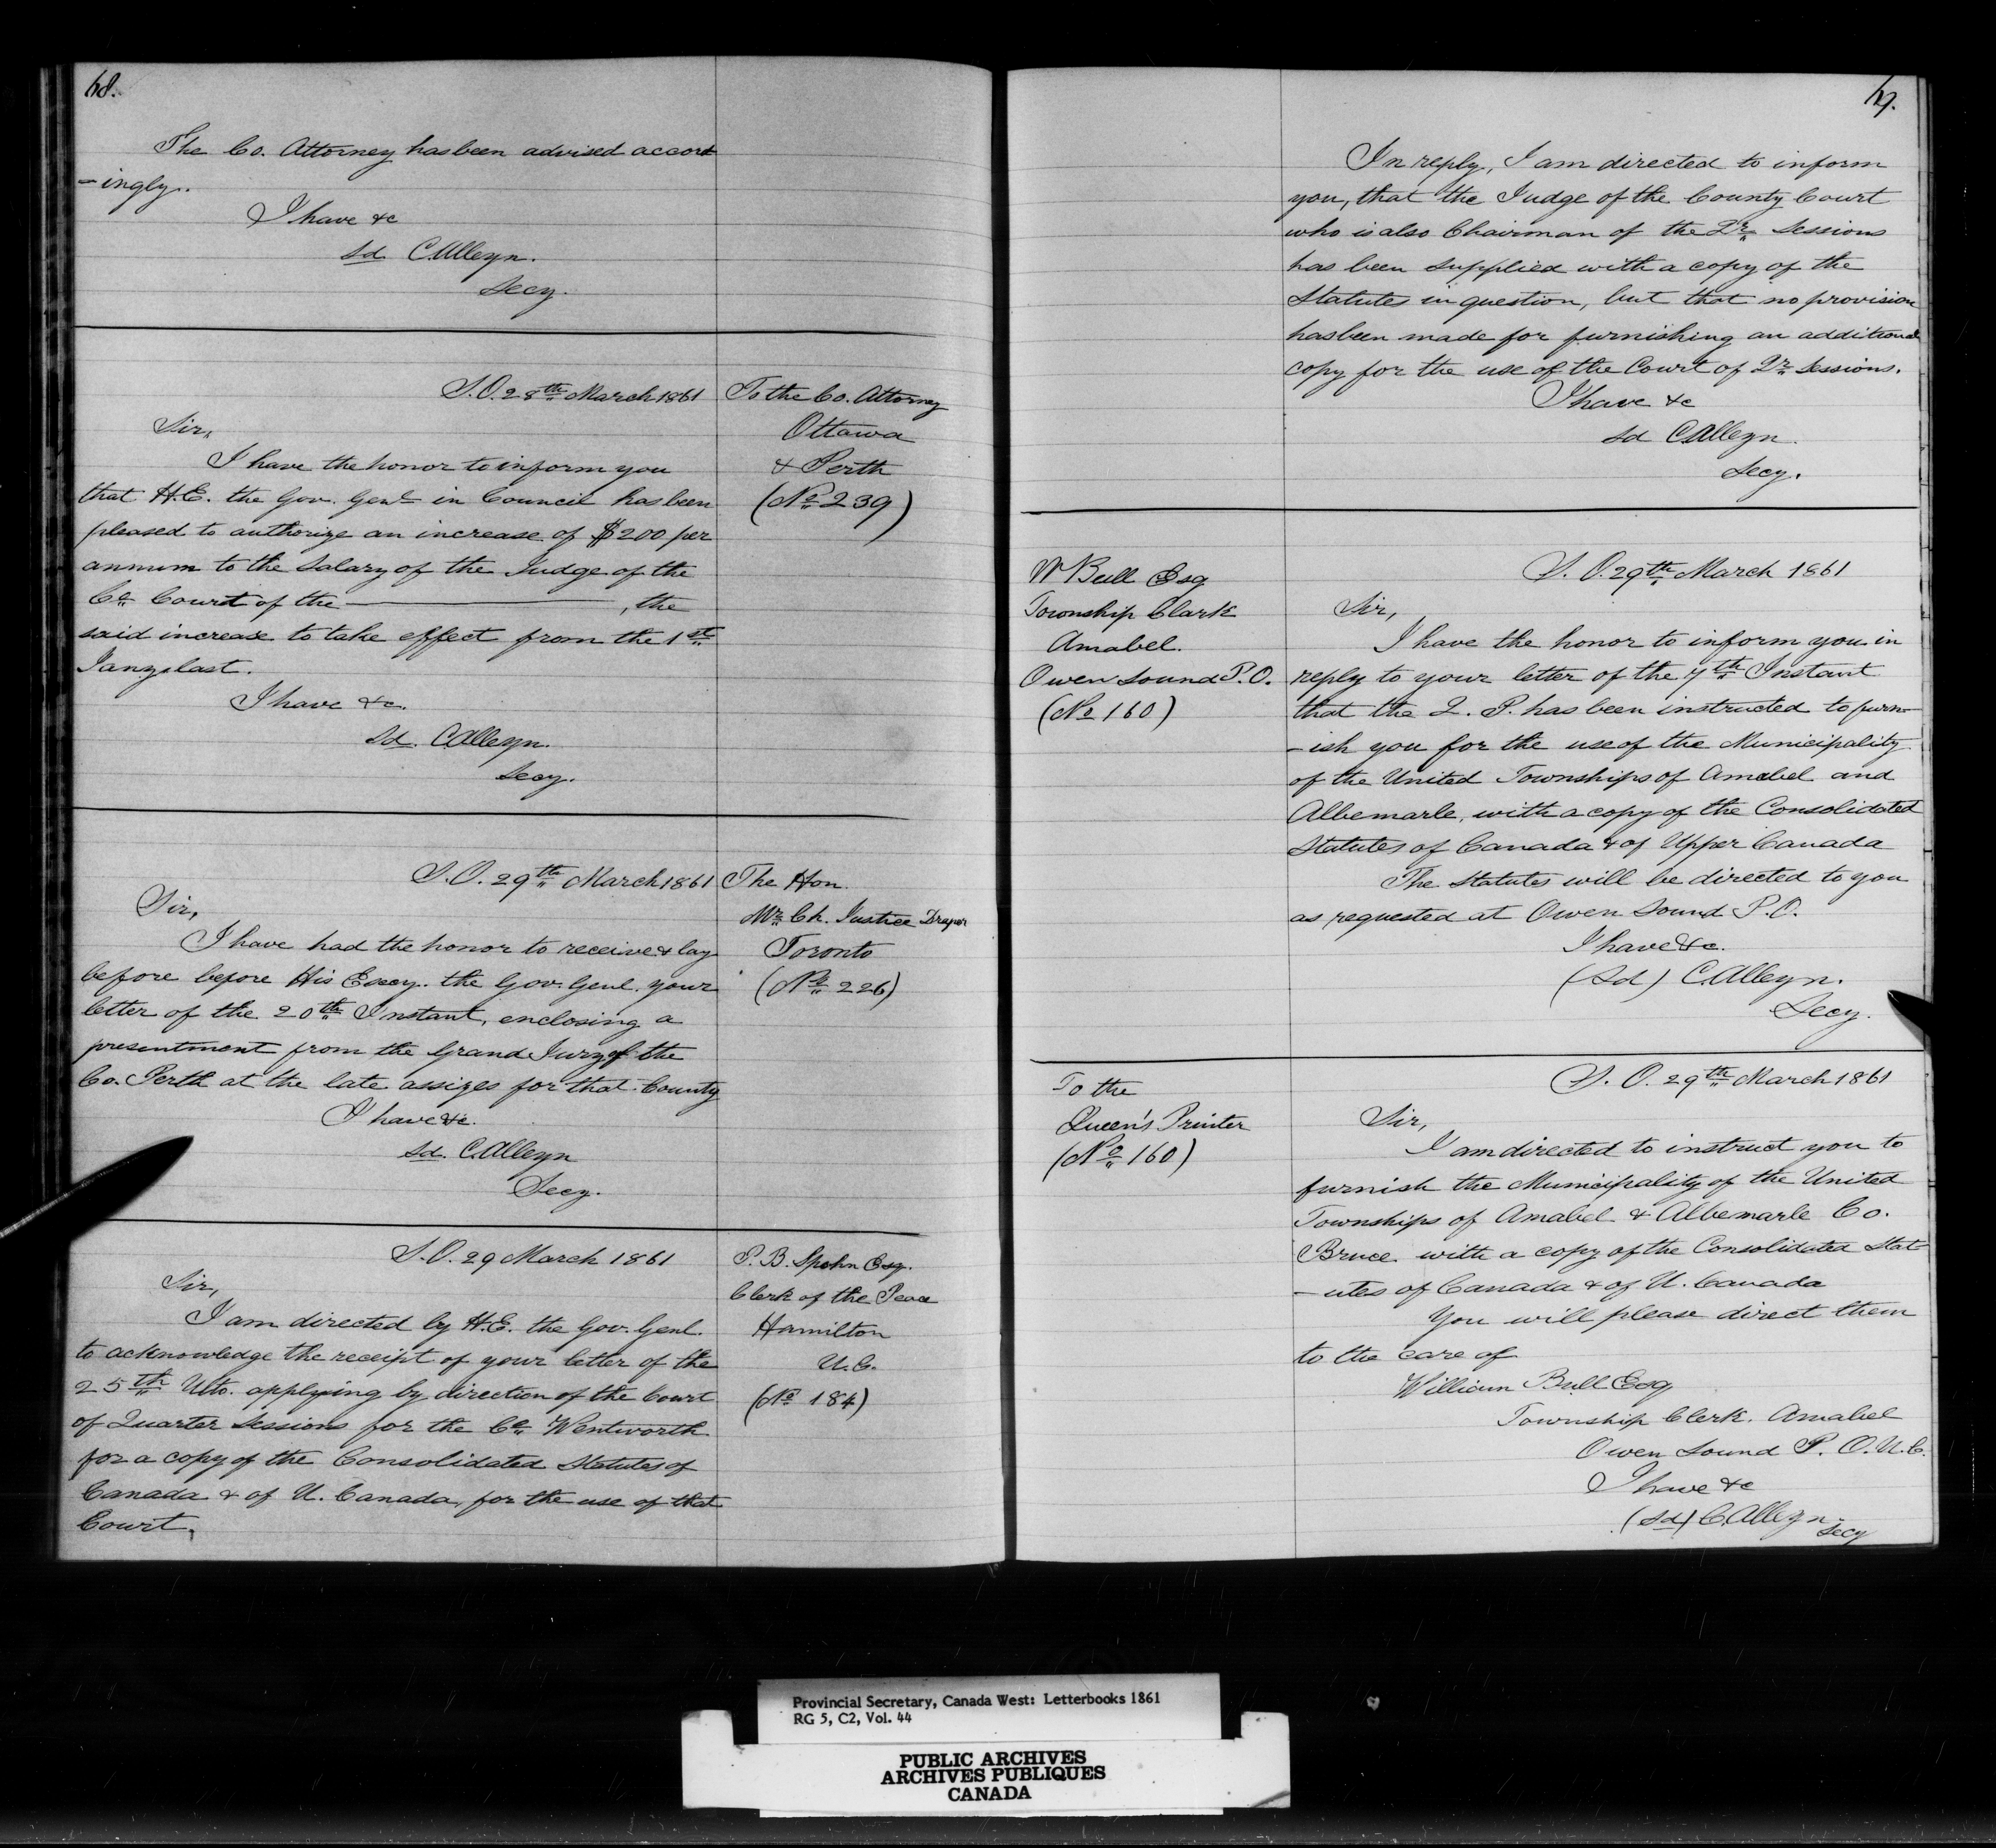 68.
The Co. Attorney has been advised accord
-ingly.
I have &c
sd C. Alleyn.
Secy.
S.O. 28th March 1861
To the Co. Attorney
Ottawa
& Perth
(No 239)
Sir,
I have the honor to inform you
that H.E. the Gov. Genl in Council has been
pleased to authorize an increase of $200 per
annum to the Salary of the Judge of the
Co Court of the ———, the
said increase to take effect from the 1st
Jany last.
I have &c.
Sd. C. Alleyn.
Secy.
S.O. 29th March 1861
The Hon.
Mr Ch. Justice Draper
Toronto
(No 226)
Sir,
I have had the honor to receive & lay
before before His Excy. the Gov. Genl. your
letter of the 20th Instant, enclosing a
presentment from the Grand Jury of the
Co. Perth at the late assizes for that County
I have &c.
sd. C. Alleyn
Secy.
S.O. 29 March 1861
P. B. Spohn Esq.
Clerk of the Peace
Hamilton
U.C.
(No 184)
Sir,
I am directed by H.E. the Gov. Genl.
to acknowledge the receipt of your letter of the
25th Ulto. applying by direction of the Court
of Quarter Sessions for the Co Wentworth
for a copy of the Consolidated Statutes of
Canada & of U. Canada, for the use of that
Court.
In reply, I am directed to inform
you, that the Judge of the County Court
who is also Chairman of the Qr Sessions
has been supplied with a copy of the
Statutes in question, but that no provision
has been made for furnishing an additional
copy for the use of the Court of Qr Sessions.
I have &c
sd C. Alleyn.
Secy.
W Bull Esq
Township Clark
Amabel.
Owen Sound P.O.
(No 160)
S.O. 29th March 1861
Sir,
I have the honor to inform you in
reply to your letter of the 7th Instant
that the Q. P. has been instructed to furn-
-ish you for the use of the Municipality
of the United Townships of Amabel and
Albemarle, with a copy of the Consolidated
Statutes of Canada & of Upper Canada
The Statutes will be directed to you
as requested at Owen Sound P.O.
I have &c.
(Sd) C. Alleyn.
Secy.
To the
Queen's Printer
(No 160)
S. O. 29th March 1861
Sir,
I am directed to instruct you to
furnish the Municipality of the United
Townships of Amabel & Albemarle Co.
Bruce with a copy of the Consolidated Stat-
-utes of Canada & of U. Canada
You will please direct them
to the care of
William Bull Esq
Township Clerk. Amabel
Owen Sound P. O. U.C.
I have &c
(Sd) C. Alleyn.
Secy
Provincial Secretary, Canada West: Letterbooks 1861
RG 5, C2, Vol. 44
PUBLIC ARCHIVES
ARCHIVES PUBLIQUES
CANADA